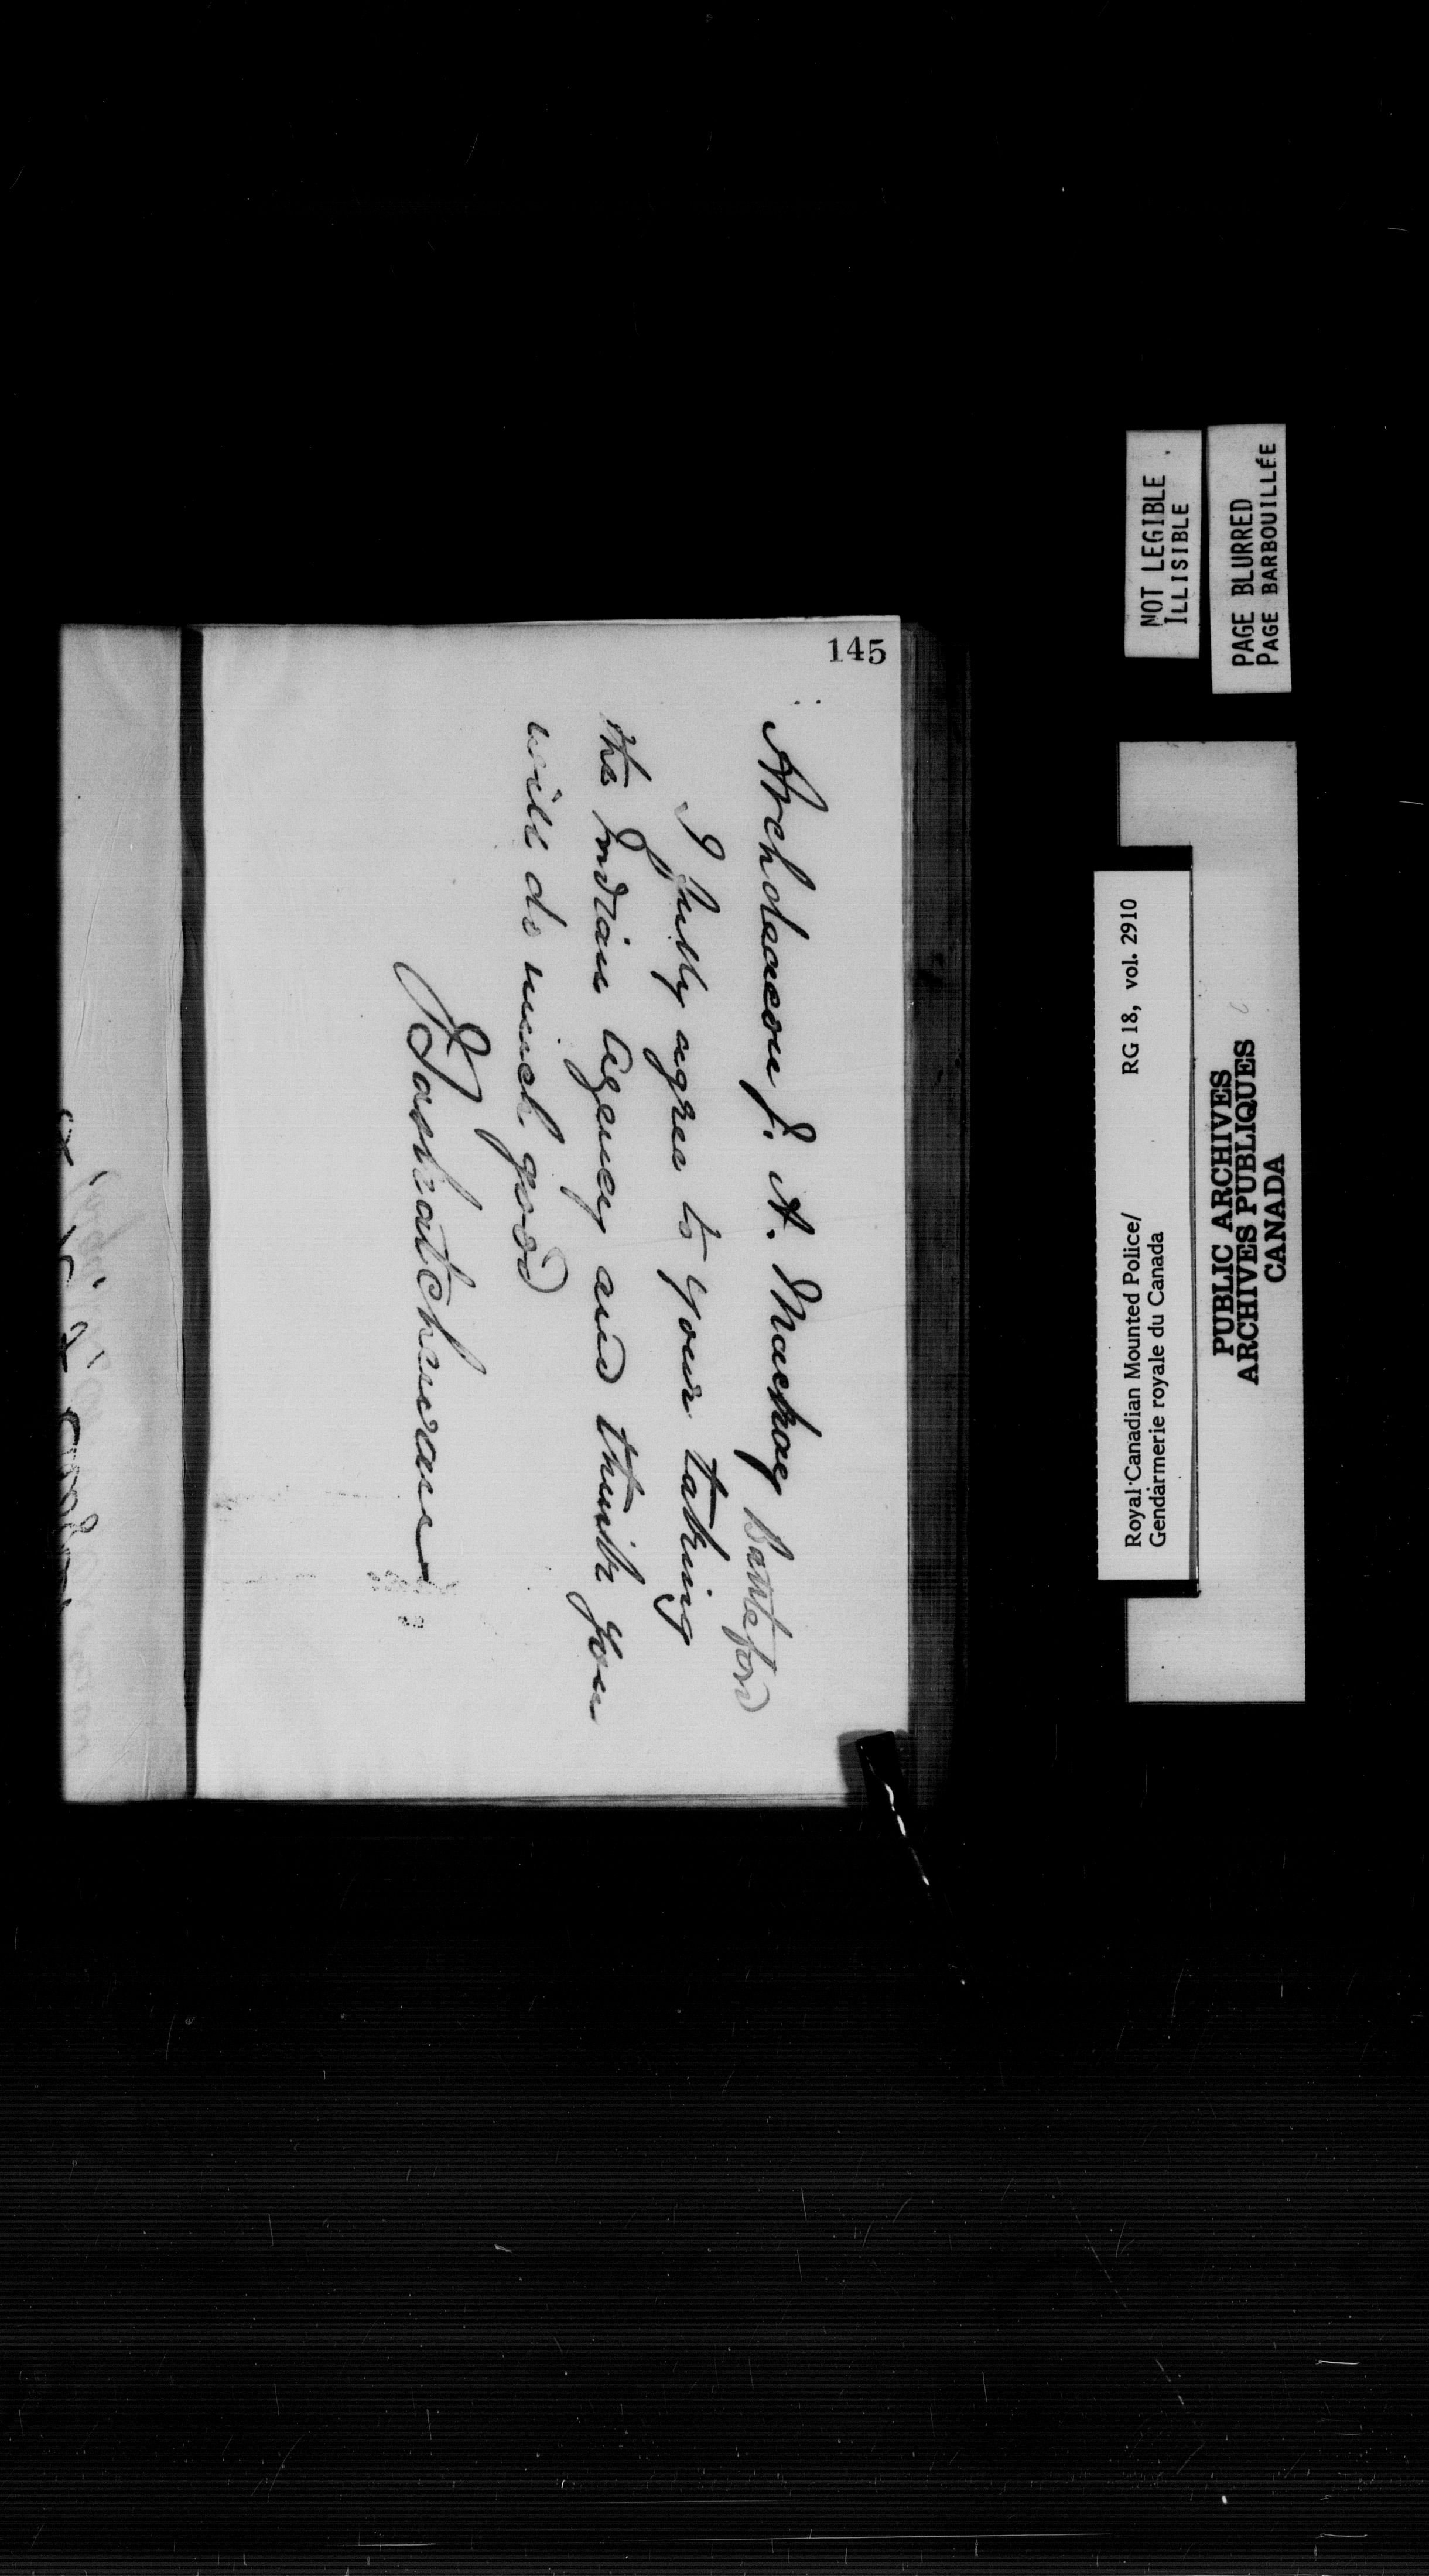 145
Archdeacon J. A. Mackay Battleford
I fully agree to your taking
the Indian Agency and think you
will do much good
J Saskatchewan
NOT LEGIBLE
ILLISIBLE
PAGE BLURRED
PAGE BARBOUILLÉE
Royal Canadian Mounted Police/ RG 18, vol. 2910
Gendarmerie royale du Canada
PUBLIC ARCHIVES
ARCHIVES PUBLIQUES
CANADA